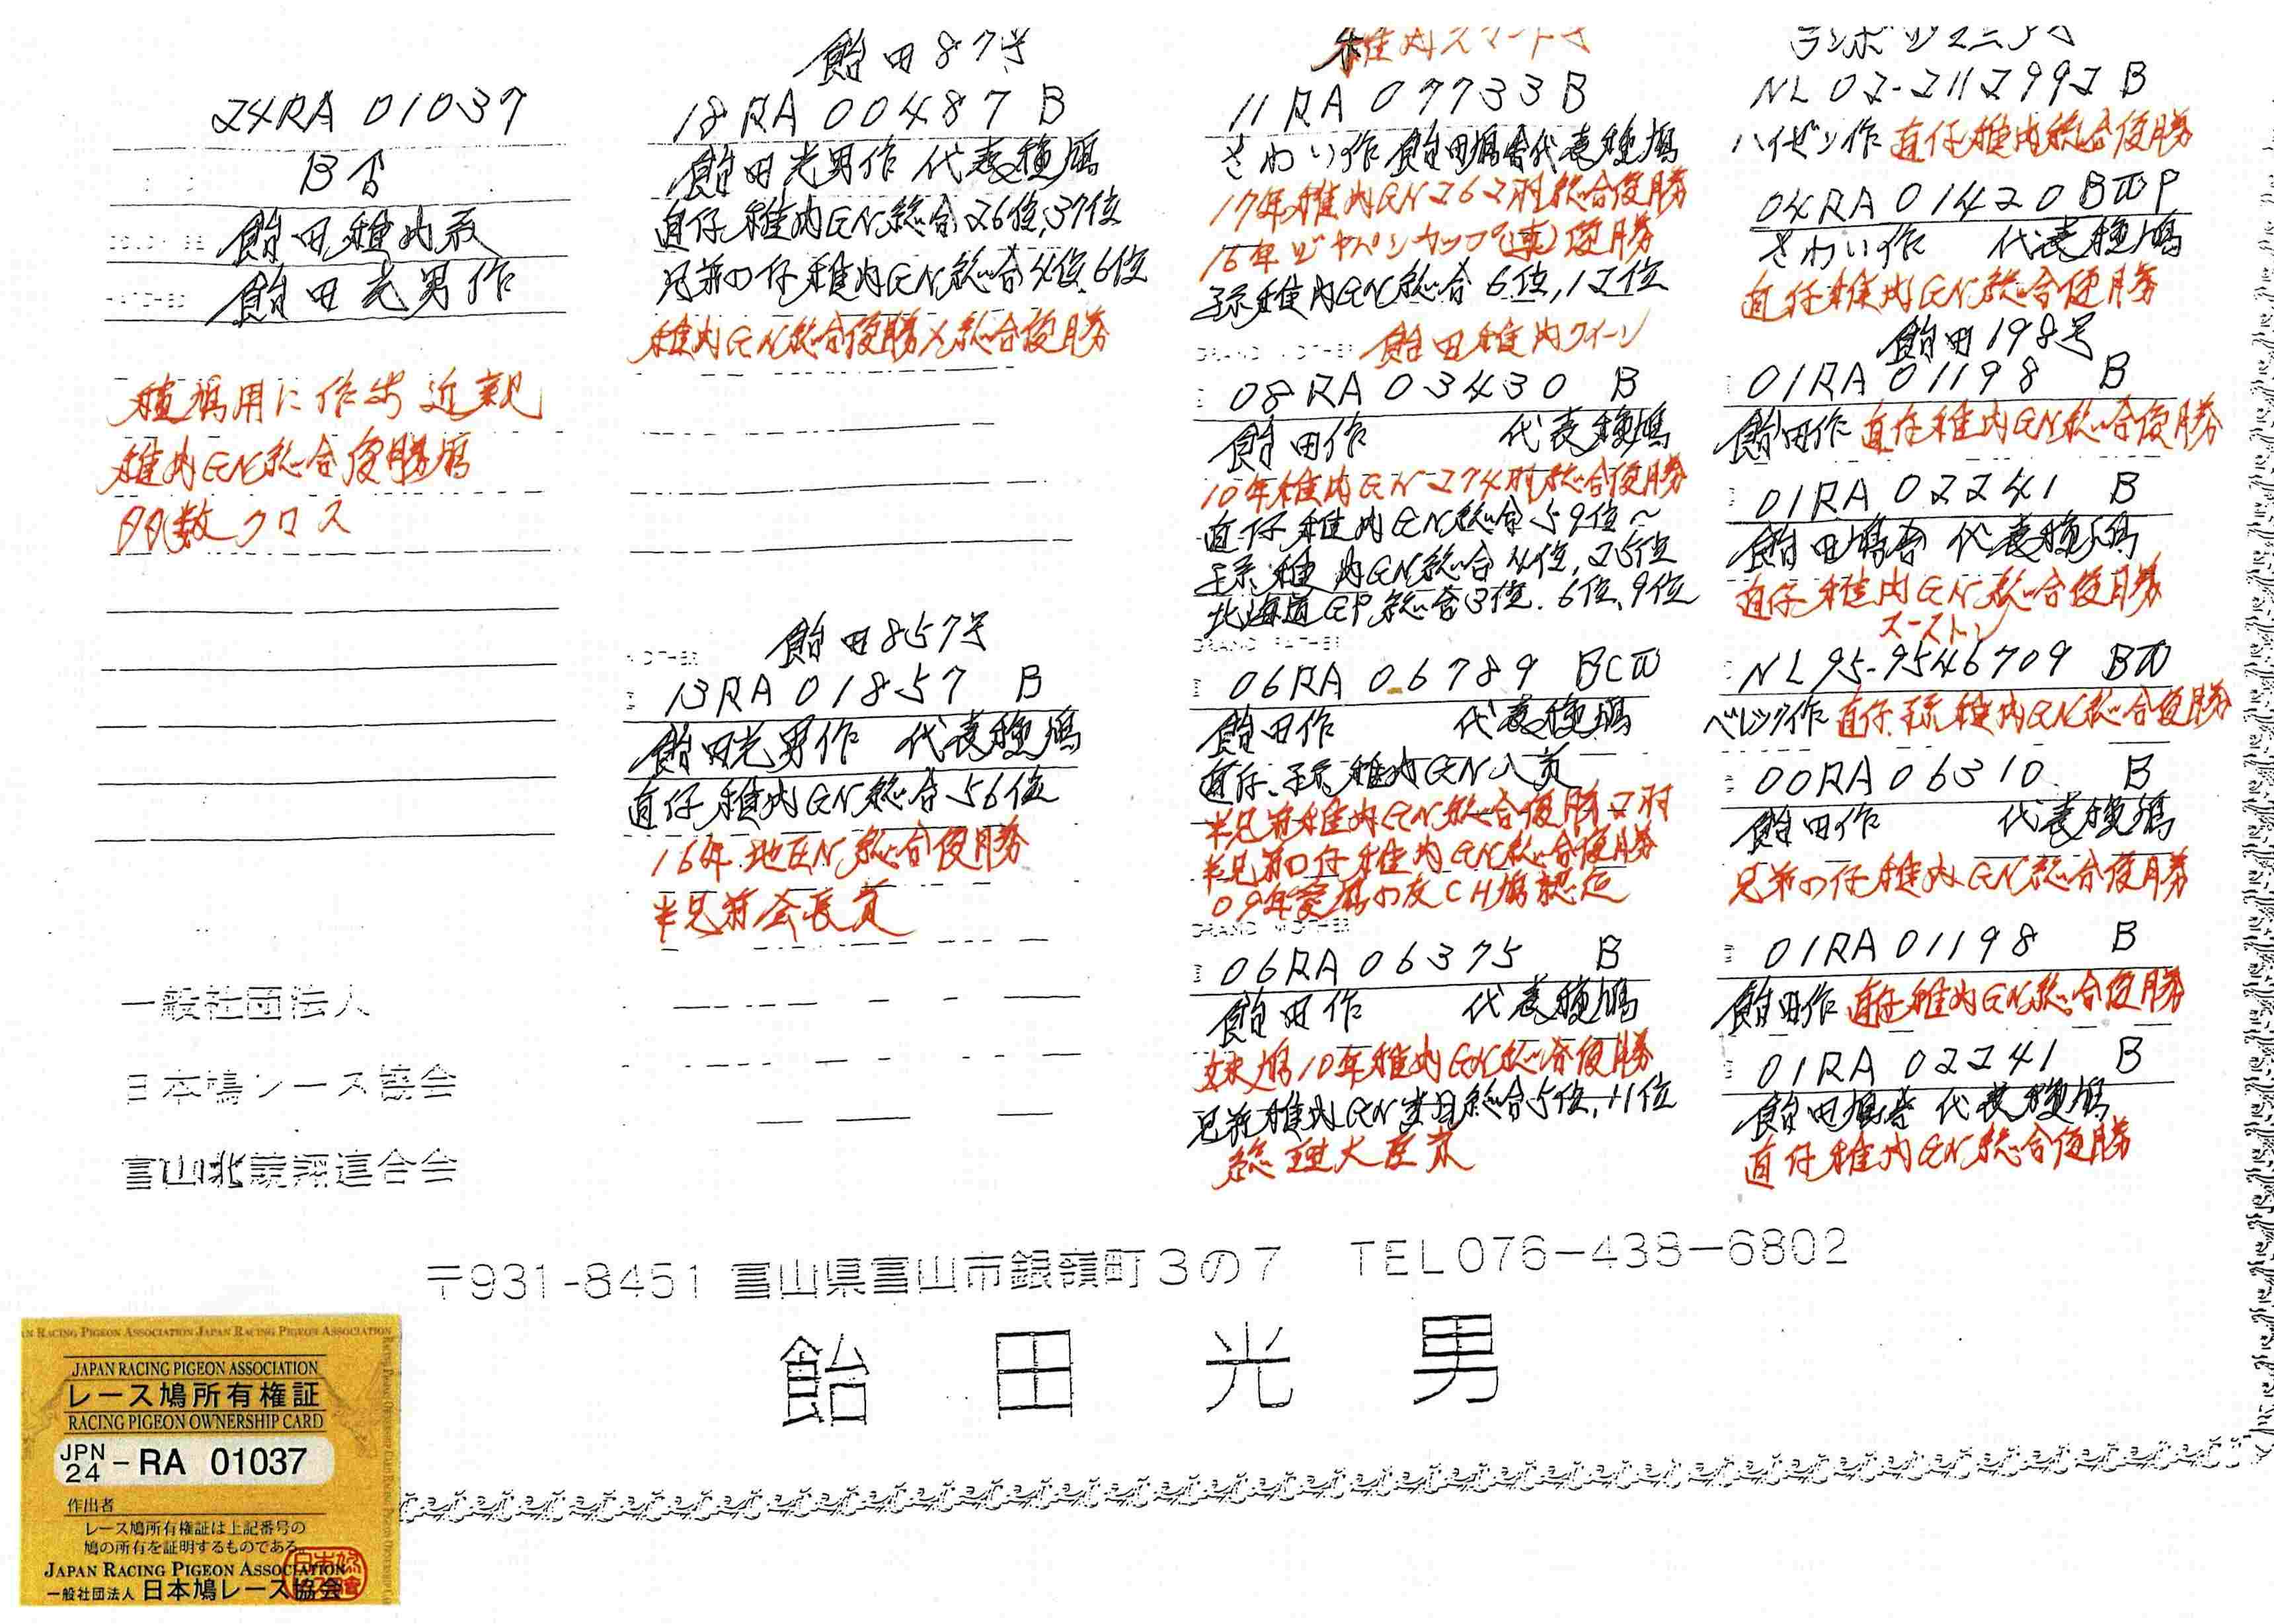 24RA 01037
B♂
飴田稚内系
飴田光男作
種鳩用に作出 近親
稚内GN総合優勝鳩
多数クロス
一般社団法人
日本鳩レース協会
富山北競翔連合会
飴田87号
18RA 00487 B
飴田光男作 代表種鳩
直仔稚内GN総合26位,37位
兄弟の仔稚内GN総合4位,6位
稚内GN総合優勝×総合優勝
飴田857号
13RA 01857 B
飴田光男作 代表種鳩
直仔稚内GN総合56位
16年地区N総合優勝
半兄弟会長賞
稚内スマート号
11RA 07733 B
さわい作 飴田鳩舎代表種鳩
17年稚内GN262羽総合優勝
16年ジャパンカップ(連)優勝
孫稚内GN総合6位,12位
飴田稚内クイーン
GRAND MOTHER
08RA 03430 B
飴田作 代表種鳩
10年稚内GN274羽総合優勝
直仔稚内GN総合59位~
孫稚内GN総合4位,25位
北海道GP総合3位.6位,9位
GRAND FATHER
06RA 06789 BCW
飴田作 代表種鳩
直仔.孫稚内GN入賞
半兄弟稚内GN総合優勝2羽
半兄弟の仔稚内GN総合優勝
09年愛鳩の友CH鳩認定
GRAND MOTHER
06RA 06375 B
飴田作 代表種鳩
妹鳩10年稚内GN総合優勝
兄弟稚内GN当日総合5位,11位
総理大臣賞
NL 02-2112992 B
ハイゼン作 直仔稚内総合優勝
04RA 01420 BWP
さわい作 代表種鳩
直仔稚内GN総合優勝
飴田198号
01RA 01198 B
飴田作 直仔稚内GN総合優勝
01RA 02241 B
飴田鳩舎 代表種鳩
直仔稚内GN総合優勝
スーストン
NL95-9546709 BW
ベレンツ作 直仔.孫稚内GN総合優勝
00RA 06310 B
飴田作 代表種鳩
兄弟の仔稚内GN総合優勝
01RA 01198 B
飴田作 直仔稚内GN総合優勝
01RA 02241 B
飴田鳩舎 代表種鳩
直仔稚内GN総合優勝
〒931-8451 富山県富山市銀嶺町3の7 TEL076-438-6802
飴田光男
JAPAN RACING PIGEON ASSOCIATION
レース鳩所有権証
RACING PIGEON OWNERSHIP CARD
JPN 24 - RA 01037
作出者
レース鳩所有権証は上記番号の
鳩の所有を証明するものである。
JAPAN RACING PIGEON ASSOCIATION
一般社団法人 日本鳩レース協会